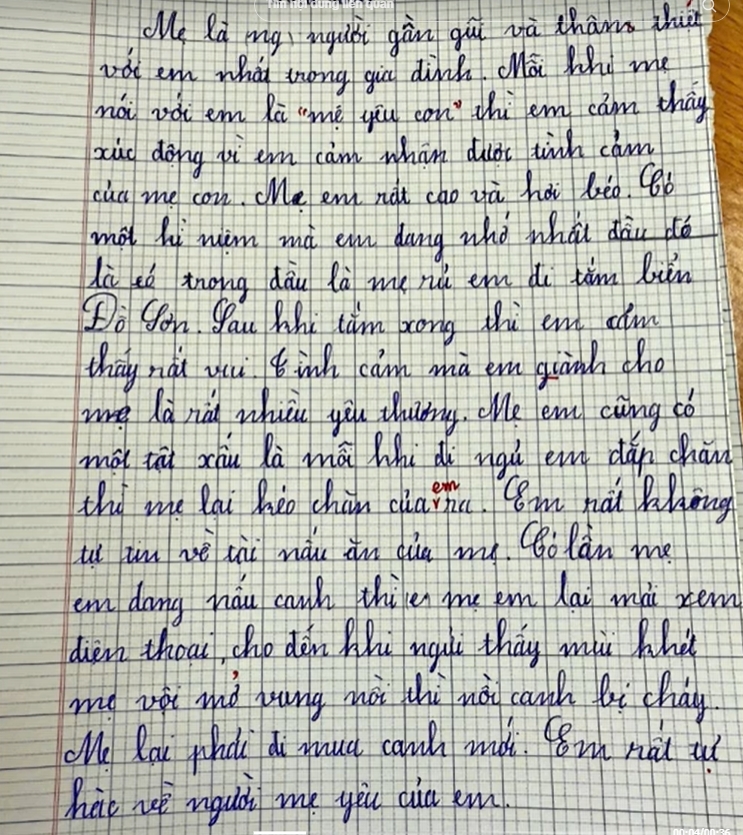 Tìm nội dung liên quan
Mẹ là ng người gần gũi và thâm thiết
với em nhất trong gia đình. Mỗi khi mẹ
nói với em là "mẹ yêu con" thì em cảm thấy
xúc động vì em cảm nhận được tình cảm
của mẹ con. Mẹ em rất cao và hơi béo. Có
một kỉ niệm mà em đang nhớ nhất đâu đó
là có trong đầu là mẹ rủ em đi tắm biển
Đồ Sơn. Sau khi tắm xong thì em cảm
thấy rất vui. Tình cảm mà em giành cho
mẹ là rất nhiều yêu thương. Mẹ em cũng có
một tật xấu là mỗi khi đi ngủ em đắp chăn
thì mẹ lại kéo chăn của em ra. Em rất không
tự tin về tài nấu ăn của mẹ. Có lần mẹ
em đang nấu canh thì mẹ em lại mải xem
điện thoại, cho đến khi ngửi thấy mùi khét
mẹ vội mở vung nồi thì nồi canh bị cháy.
Mẹ lại phải đi mua canh mới. Em rất tự
hào về người mẹ yêu của em.
00:04/00:36